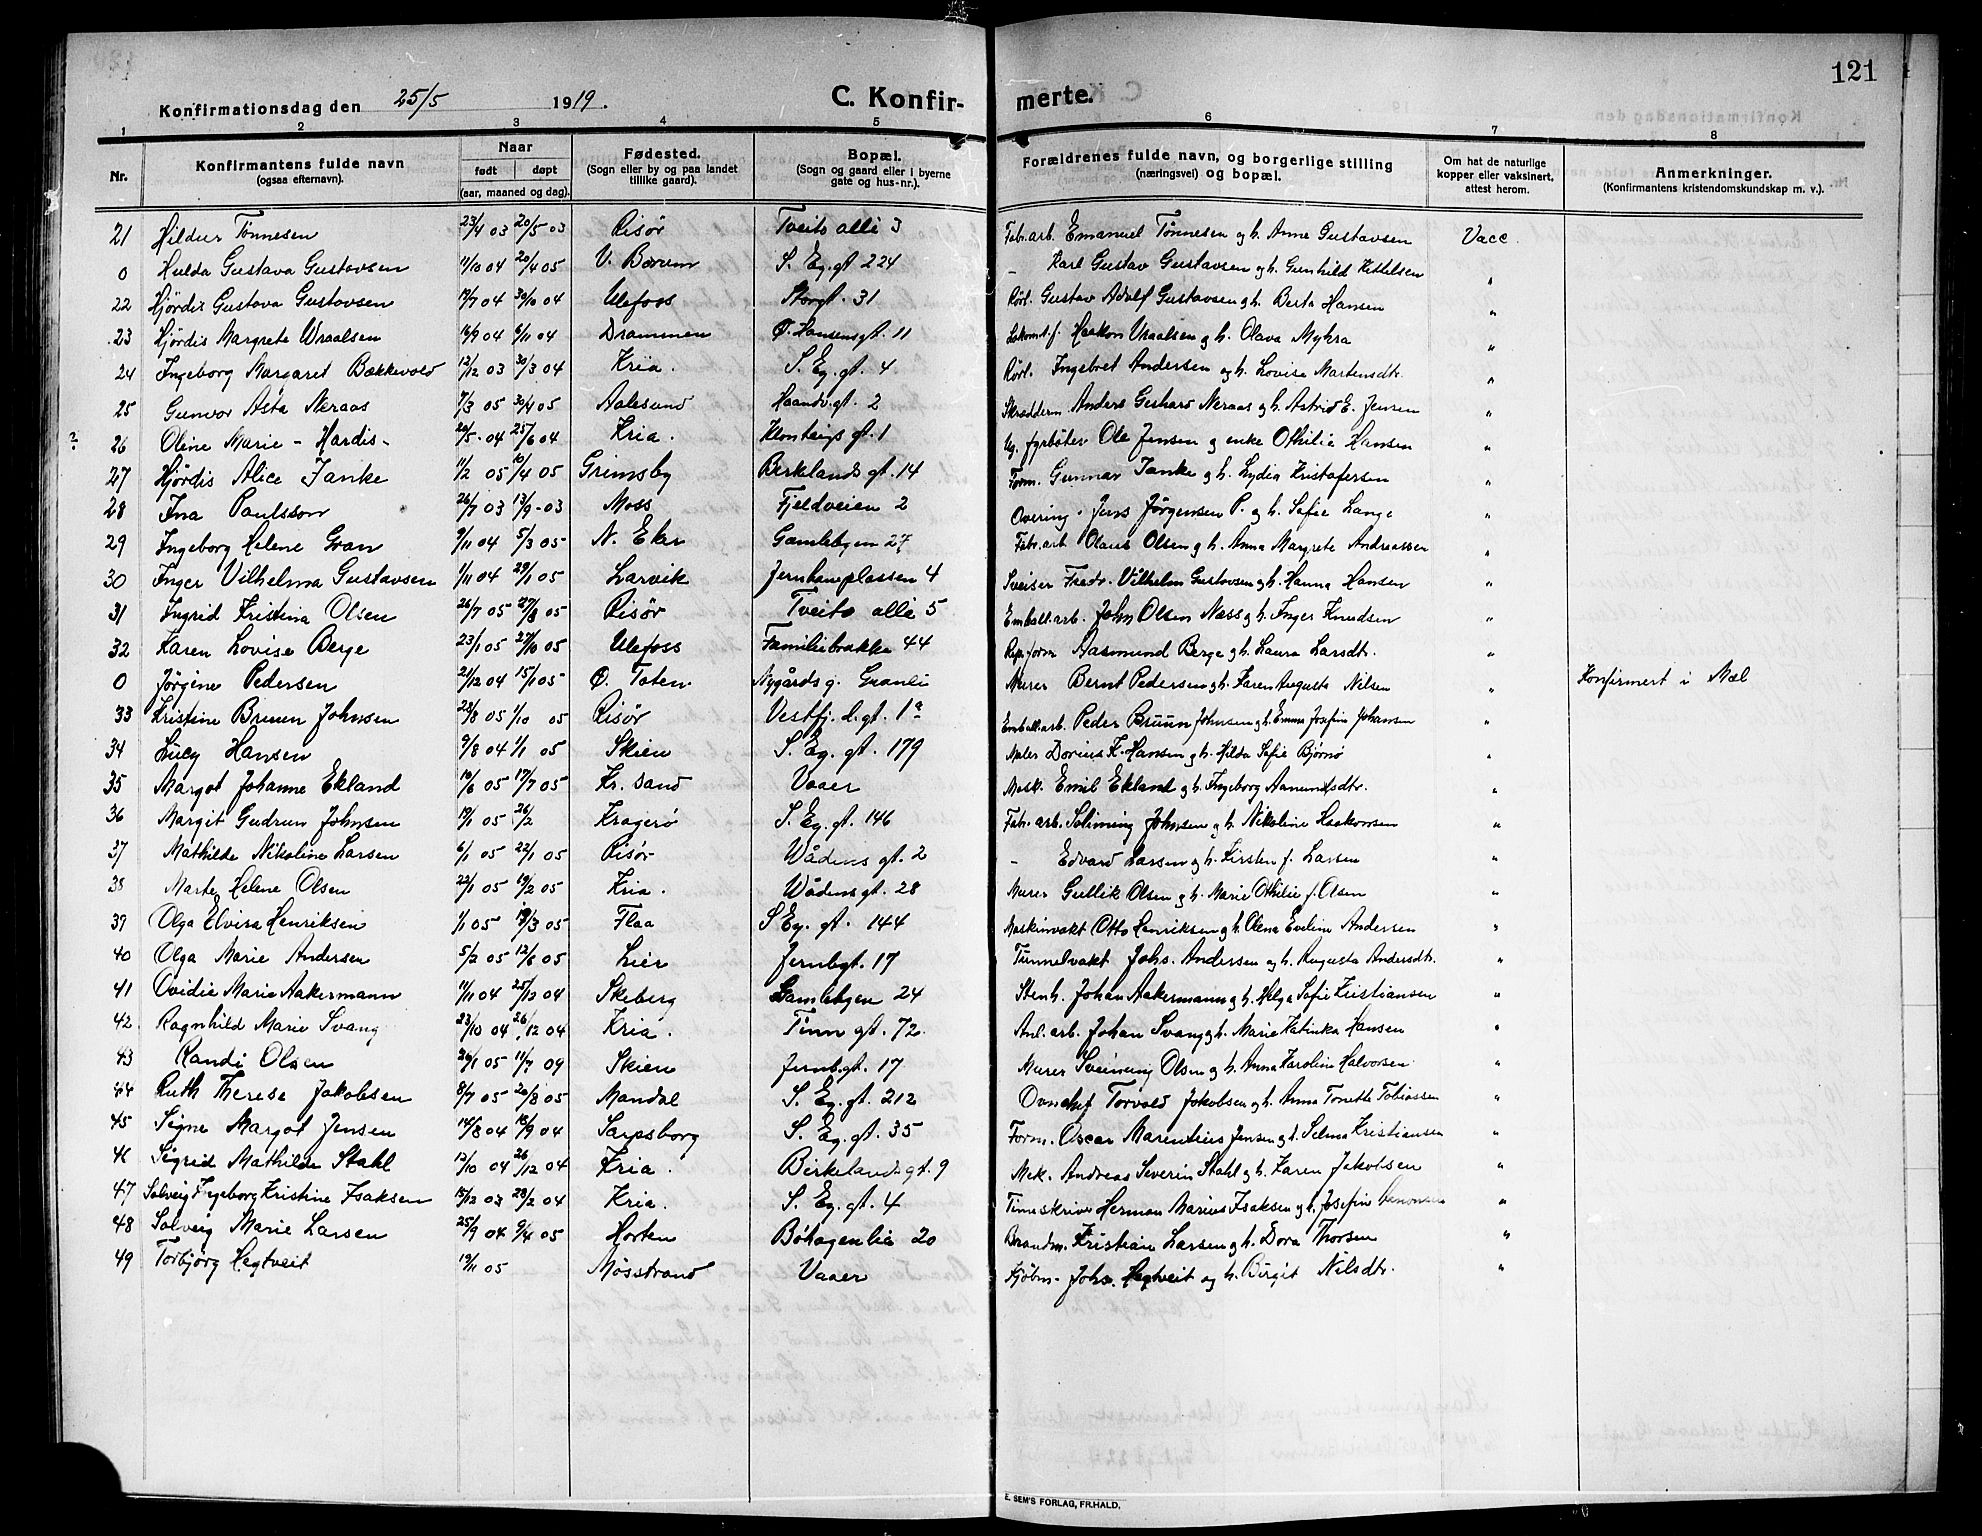 121
Konfirmationsdag den 25/5 1919. C. Konfir- merte.
1 2 3 4 5 6 7 8
Nr. Konfirmantens fulde navn (ogsaa efternavn). Naar født døpt (aar, maaned og dag). Fødested. (Sogn eller by og paa landet tillike gaard). Bopæl. (Sogn og gaard eller i byerne gate og hus-nr.). Forældrenes fulde navn, og borgerlige stilling (næringsvei) og bopæl. Om hat de naturlige kopper eller vaksinert, attest herom. Anmerkninger. (Konfirmantens kristendomskundskap m. v.).
21 Hildur Tønnesen 23/4 03 20/5 03 Risør Tveito allé 3 Fabr.arb. Emanuel Tønnesen og h. Anne Gustavsen Vacc.
0 Hulda Gustava Gustavsen 11/10 04 20/4 05 V. Borum S. Eg. gt 224 - Karl Gustav Gustavsen og h. Gunhild Kittelsen "
22 Hjørdis Gustava Gustavsen 19/7 04 30/10 04 Ulefoss Storgt. 31 Rørl. Gustav Adolf Gustavsen og h. Berta Hansen "
23 Hjørdis Margrete Wraalsen 16/9 04 6/11 04 Drammen O. Hansensgt. 11 Lokomt.f. Haakon Vraalsen og h. Olava Myhra "
24 Ingeborg Margaret Bækkevold 12/12 03 30/3 04 Kria. S. Eg. gt. 4 Rørl. Ingebret Andersen og h. Lovise Martensdtr. "
25 Gunvor Asta Neraas 7/3 05 30/4 05 Aalesund Haandv.gt. 2 Skrædderm Anders Gerhard Neraas og h. Astrid E. Jensen "
? 26 Oline Marie - Hardis- 20/5-04 25/6 04 Kria. gt. 1 fyrbøter Ole Jensen og enke Othilie Hansen "
27 Hjørdis Alice Tanke 11/2 05 10/4 05 Grimsby Birkelands gt. 14 Form. Gunnar Tanke og h. Lydia Kristofersen "
28 Ina Paulsson 26/7 03 13/9-03 Moss Fjeldveien 2 Overing. Jens Jørgensen P. og h. Sofie Lange "
29 Ingeborg Helene Gran 9/11 04 5/3 05 N. Eker Gamlebyen 27 Fabr.arb Olaus Olsen og h. Anna Margrete Andreassen "
30 Inger Vilhelma Gustavsen 1/11 04 29/1 05 Larvik Jernbaneplassen 4 Sveiser Fredr. Vilhelm Gustavsen og h. Hanna Hansen "
31 Ingrid Kristina Olsen 26/7 05 27/8 05 Risør Tveito allé 5 Emball.arb. John Olsen Næss og h. Inger Knudsen "
32 Karen Lovise Berge 23/1 05 29/10 05 Ulefoss Familiebrakke 44 Rep.form Aasmund Berge og h. Laura Larsdtr. "
0 Jørgine Pedersen 21/12 04 15/1 05 Ø. Toten Nygårds g. Granli Murer Bernt Pedersen og h. Karen Augusta Nilsen " Konfirmert i Mæl
33 Kristine Bruun Johnsen 28/8 05 1/10 05 Risør Vestfj.d.gt. 1a Emball.arb Peder Bruun Johnsen og h. Emma Josefin Johansen "
34 Lucy Hansen 9/8 04 1/1 05 Skien S. Eg. gt. 179 Maler Dorius K. Hansen og h. Hilda Sofie Bjørnø "
35 Margot Johanne Ekland 10/6 05 17/7 05 Kr. sand Vaaer Mask. Emil Ekland og h. Ingeborg Aanundsdtr. "
36 Margit Gudrun Johnsen 19/1 05 26/2 Kragerø S. Eg. gt. 146 Fabr.arb. Johnsen og h. Nikoline Isakovsen "
37 Mathilde Nikoline Larsen 6/1 05 22/1 05 Risør Wådens gt. 2 - Edvard Larsen og h. Kirsten f. Larsen "
38 Marte Helene Olsen 22/1 05 19/2 05 Kria. Wådensgt. 28 Murer Gullik Olsen og h. Marie Othilie f. Olsen "
39 Olga Elvira Henriksen 1/1 05 19/3 05 Flaa S. Eg. gt. 144 Maskinvakt Otto Henriksen og h. Olena Eveline Andersen "
40 Olga Marie Andersen 5/2 05 12/6 05 Lier Jernbgt. 17 Tunnelvakt Johs. Andersen og h. Augusta Andersdtr. "
41 Ovidie Marie Aakermann 11/11 04 25/12 04 Skeberg Gamlebyen 24 Stenh. Johan Aakermann og h. Helga Sofie Kristiansen "
42 Ragnhild Marie Svang 23/10 04 26/12 04 Kria. Tinn gt. 72. Anl.arb. Johan Svang og h. Marie Katinka Hansen "
43 Randi Olsen 26/1 05 11/7 09 Skien Jernb.gt. 17 Murer Sveinung Olsen og h. Anna Karoline Halvorsen "
44 Ruth Therese Jakobsen 8/7 05 20/8 05 Mandal S. Eg. gt. 212 Torvald Jakobsen og h. Anna Tonette Tobiassen "
45 Signe Margot Jensen 14/8 04 18/9 04 Sarpsborg S. Eg. gt. 35 Form. Oscar Marentius Jensen og h. Selma Kristiansen "
46 Sigrid Mathilde Stahl 12/10 04 26/12 04 Kria. Birkelandsgt. 9 Mek. Andreas Severin Stahl og h. Karen Jakobsen "
47 Solveig Ingeborg Kristine Isaksen 15/12 03 28/2 04 Kria. S. Eg. gt. 4 Timeskriver Herman Marius Isaksen og h. Josefin "
48 Solveig Marie Larsen 25/9 04 9/4 05 Horten Bøhagenlia 20 Brandm. Kristian Larsen og h. Dora Thorsen "
49 Torbjørg Hegtveit 19/11 05 Møsstrand Vaaer Kjøbm. Johs. Hegtveit og h. Birgit Nilsdtr. "
E. SEM'S FORLAG, FR.HALD.